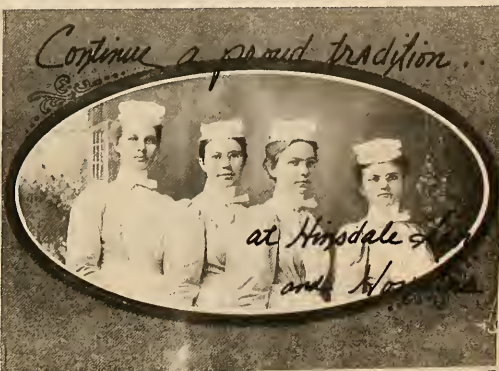 Continue a proud tradition...
at Hinsdale
and